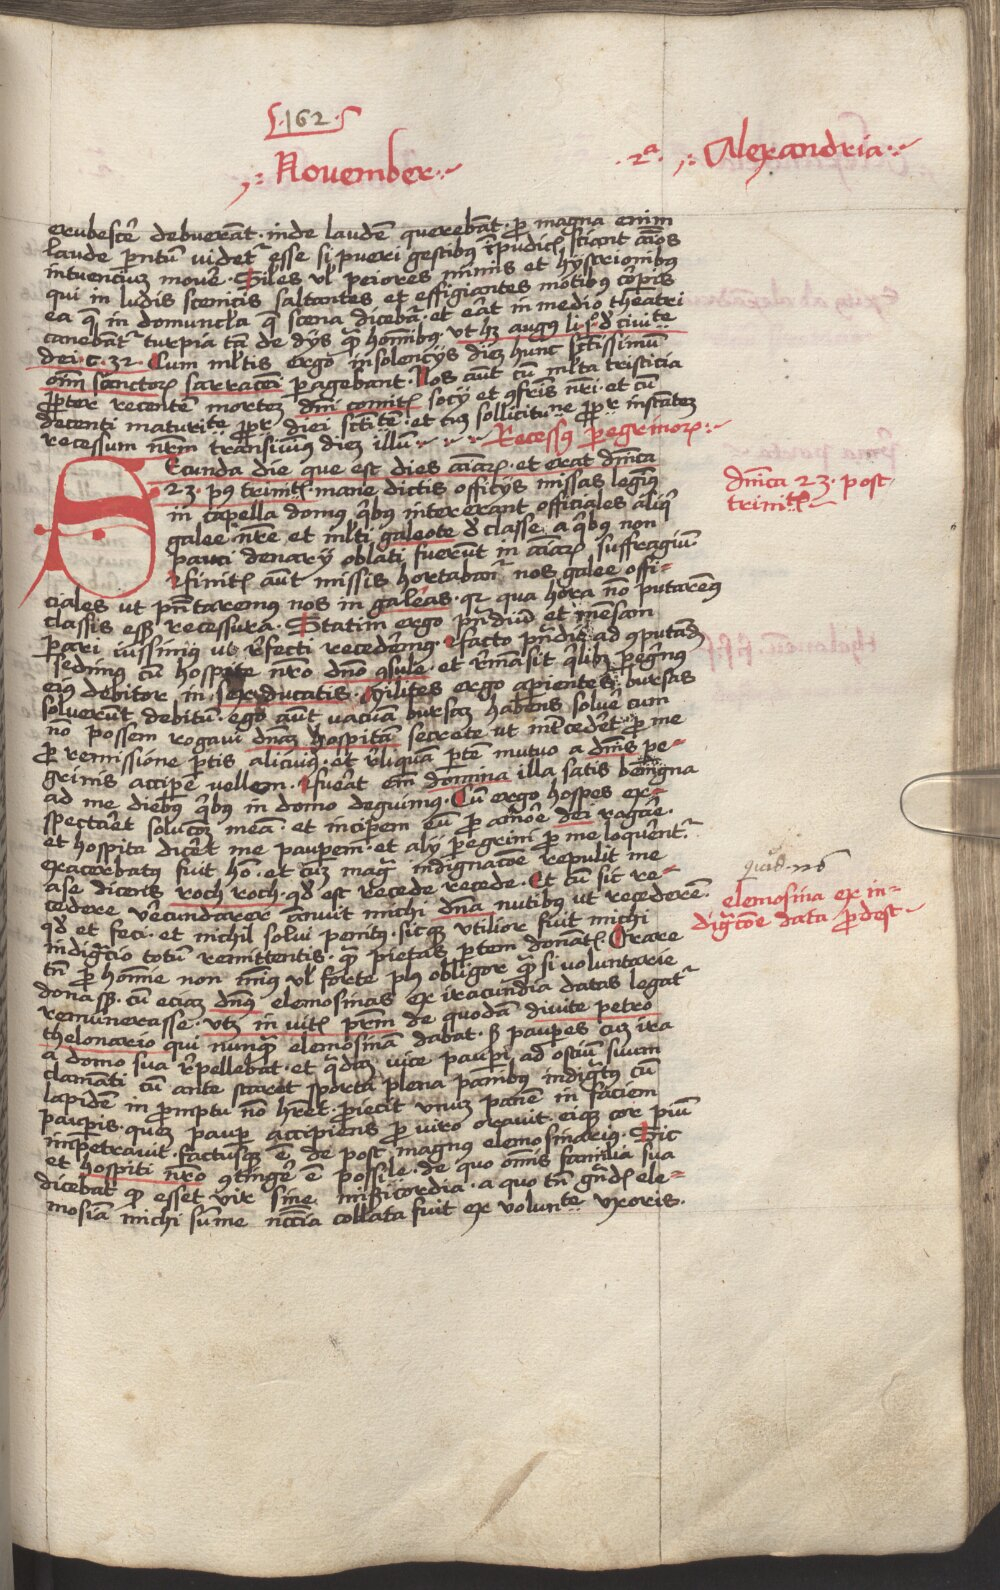 162
November
2a Alexandria
erubescere debuerant inde laudem querebant pro magna enim
laude ptum videtur esse si pueri gestibus ipudicis sciant aios
intuencium movere Siles vl peiores mimis et hystrionibus
qui in ludis scenicis saltantes et effigiantes motibus corporis
ea que in domuncla que scena diceba et erat in medio theatri
canebant turpia tam de dys quam hominibus ut hz augus li de civite
dei c 32 Cum mltis ergo insolencys diem hunc sctissimum
om sanctorum sarraceni pagebant Nos aut cum mlta tristicia
propter recentem mortem dni comitis socy et confris nri et cum
decenti maturite propter diei sctitem et cum sollicitune propter instantem
recessum nrm transivimus diem illum
Recessus peregrinorum
Secunda die que est dies animarum et erat dnica
23 post trinitatis mane dictis officys missas legimus
in capella domus quibus intererant officiales aliqui
galee nre et mlti galeote de classe a quibus non
pauci denary oblati fuerunt in animarum suffragium
finitis aut missis hortabantur nos galee offi-
ciales ut pntaremus nos in galeas qr qua hora no putaremus
classis esset recessura Statim ergo prandium et mensam
parari iussimus ut refecti recederemus facto prandio ad computandum
sedimus cum hospite nro dno consule et remansit quilibet peregrinus
eius debitor in sex ducatis Milites ergo aperientes bursas
solverunt debitum ego aut vacuam bursam habens solvere cum
no possem rogavi dnam hospitam secrete ut intcederet pro me
pro remissione partis alicuius et reliquam ptem mutuo a dnis pe-
grinis accipe vellem fuerat em domina illa satis benigna
ad me diebus quibus in domo deguimus Cum ergo hospes ex-
spectaret solucionem meam et inciperem eum pro amore dei rogare
et hospita diceret me pauperem et aly peregrini pro me loquerentur
exacerbatus fuit homo et cum magna indignacione repulit me
a se dicens roch roch quod est recede recede Et cum sic re-
cedere verecundarer annuit michi dna nutibus ut recederem
quod et feci et nichil solvi penitus sicque utilior fuit michi
indignacio totum remittentis quam pietas partem donantis Orare
tn pro homine non minus vl forte plus obligor quam si voluntarie
donasset cum eciam dnus elemosinas ex iracundia datas legatur
remunerasse utz in vitis patrum de quodam divite petro
thelonario qui nunquam elemosinam dabat sed pauperes cum ira
a domo sua repellebat et quadam vice pauperi ad ostium suum
clamanti cum ante staret sporta plena panibus indignatus cum
lapidem in promptu no hret proiecit unum panem in faciem
pauperis quem pauper accipiens pro viro oravit eique cor pium
impetravit factusque est de post magnus elemosinarius Sic
et hospiti nro contingere est possibile de quo omnis familia sua
dicebat quod esset vir sine misericordia a quo tn grandis ele-
mosina michi summe necessaria collata fuit ex voluntate uxoris
dnica 23 post
trinitatis
elemosina ex in-
dignacione data prodest